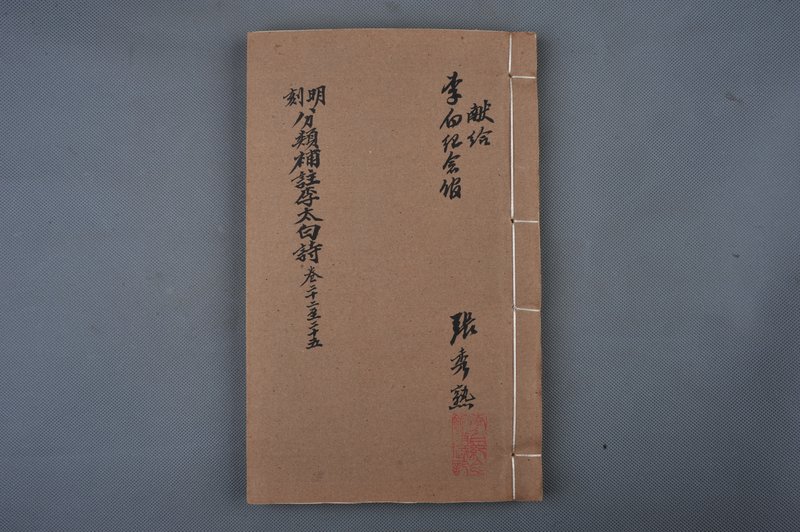 献给
李白纪念馆
张秀熟
明刻
分類補註李太白詩
卷二十二至二十五